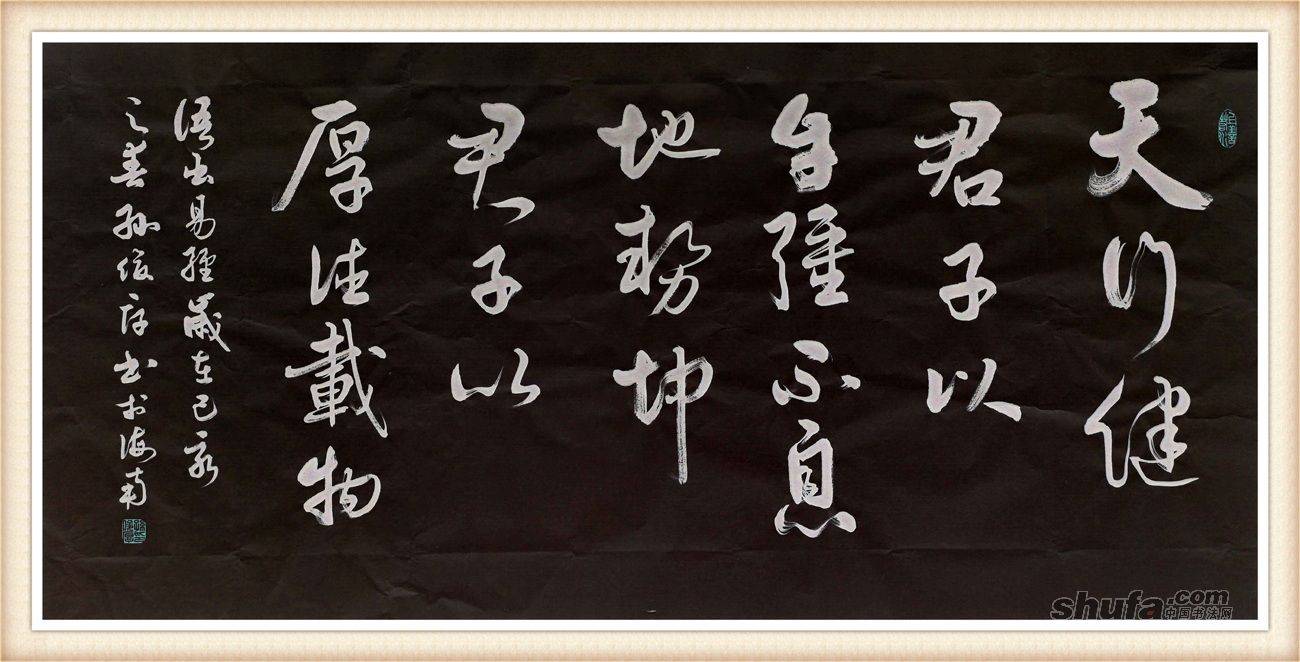 天行健
君子以
自强不息
地势坤
君子以
厚德載物
语出易經歲在己亥
之春孙俊存书於海南
shufa.com
中国书法网